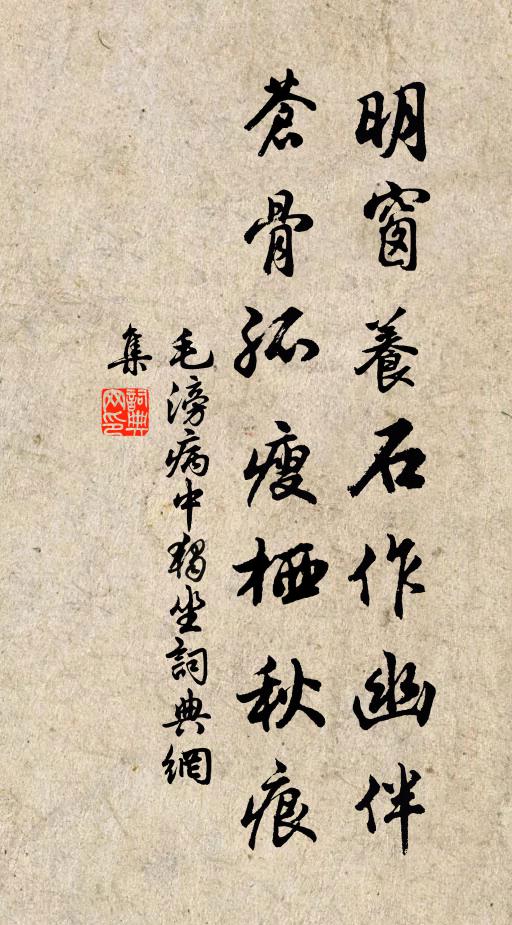 明窗養石作幽伴
蒼骨孤瘦栖秋痕
毛滂病中獨坐詞典網
集
詞典網印